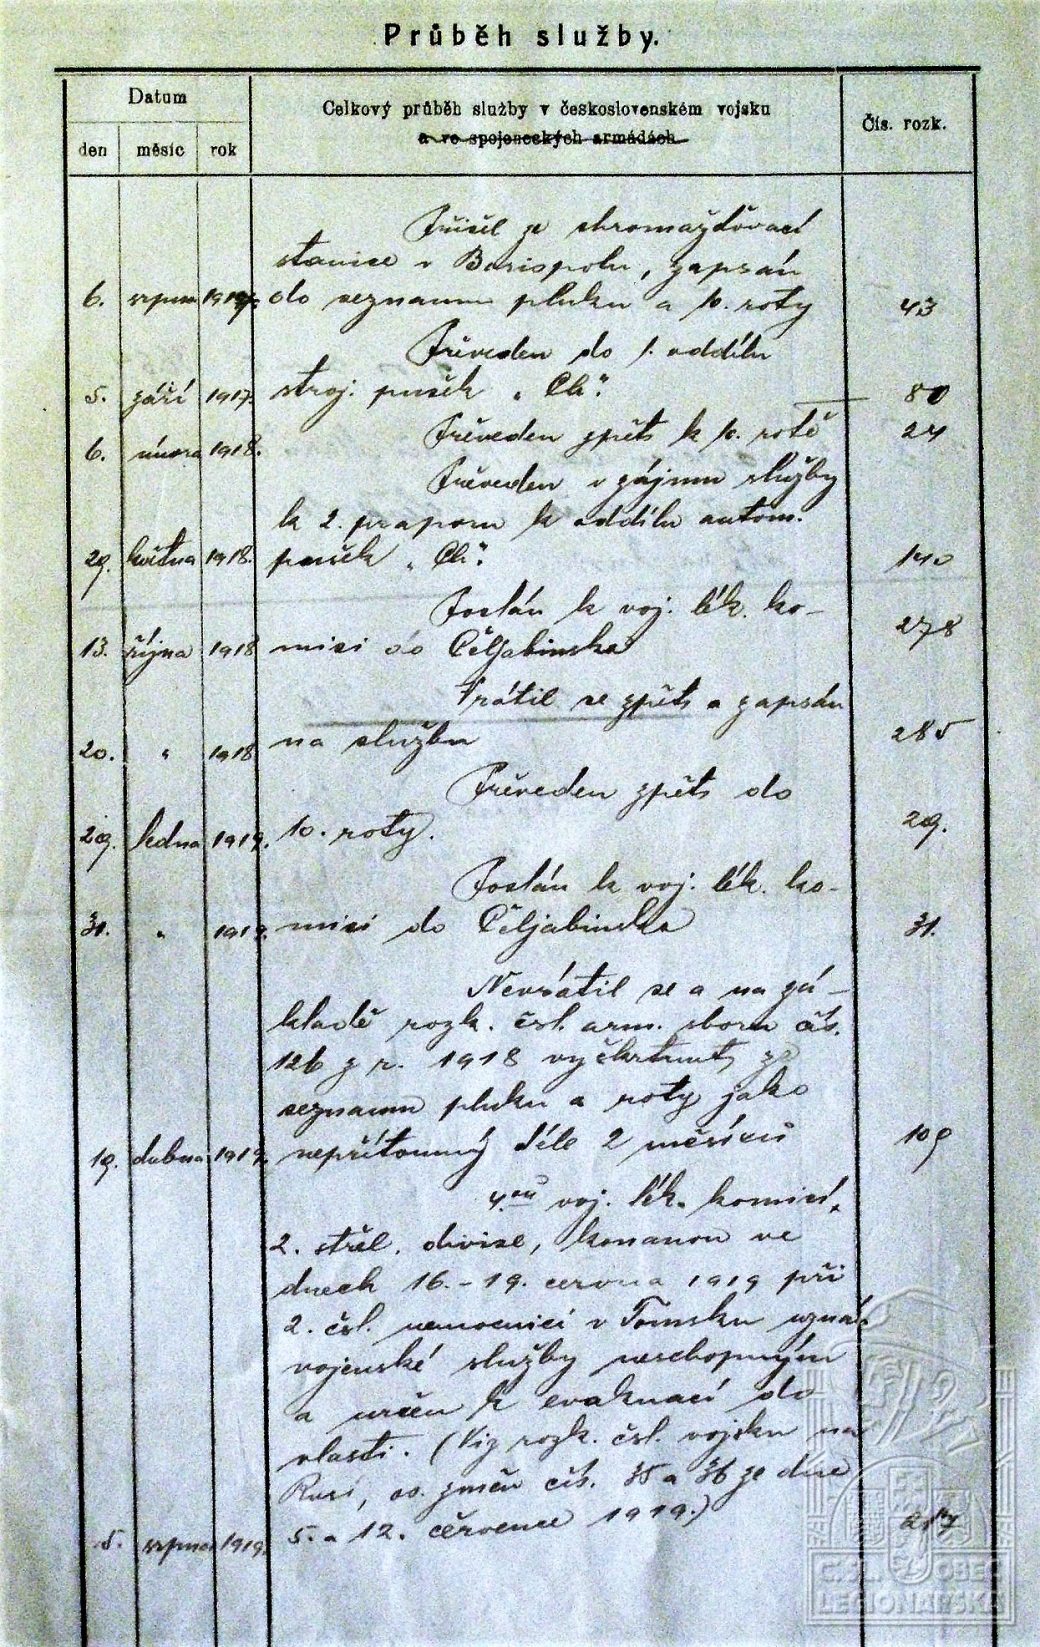 Průběh služby.
Datum
Celkový průběh služby v československém vojsku
a ve spojeneckých armádách
Čís. rozk.
den měsíc rok
Přišel ze shromažďovací
stanice v Borispolu, zapsán
6. srpna 1917. do seznamu pluku a 10. roty 43
Převeden do 1. oddílu
5. září 1917. stroj. pušek „Ch". 80
6. února 1918. Převeden zpět k 10. rotě 27
Převeden v zájmu služby
k 2. praporu k oddílu autom.
29. května 1918. pušek „Ch". 140
Poslán k voj. lék. ko-
13. října 1918 misi do Čeljabinska 278
Vrátil se zpět a zapsán
20. „ 1918 na službu 285
Převeden zpět do
29. ledna 1919. 10. roty. 29.
Poslán k voj. lék. ko-
31. „ 1919. misi do Čeljabinska 31.
Nevrátil se a na zá-
kladě rozk. čsl. arm. sboru čís.
126 z r. 1918 vyškrtnut ze
seznamu pluku a roty jako
19. dubna 1919. nepřítomný déle 2 měsíců 109
4.ou voj. lék. komisí
2. střel. divise, konanou ve
dnech 16.-19. června 1919 při
2. čsl. nemocnici v Tomsku uznán
vojenské služby neschopným
a určen k evakuaci do
vlasti. (Viz rozk. čsl. vojsku na
Rusi, os. změn čís. 35 a 36 ze dne
5. srpna 1919. 5. a 12. července 1919.) 217
Č.SL. OBEC
LEGIONÁŘSKÁ